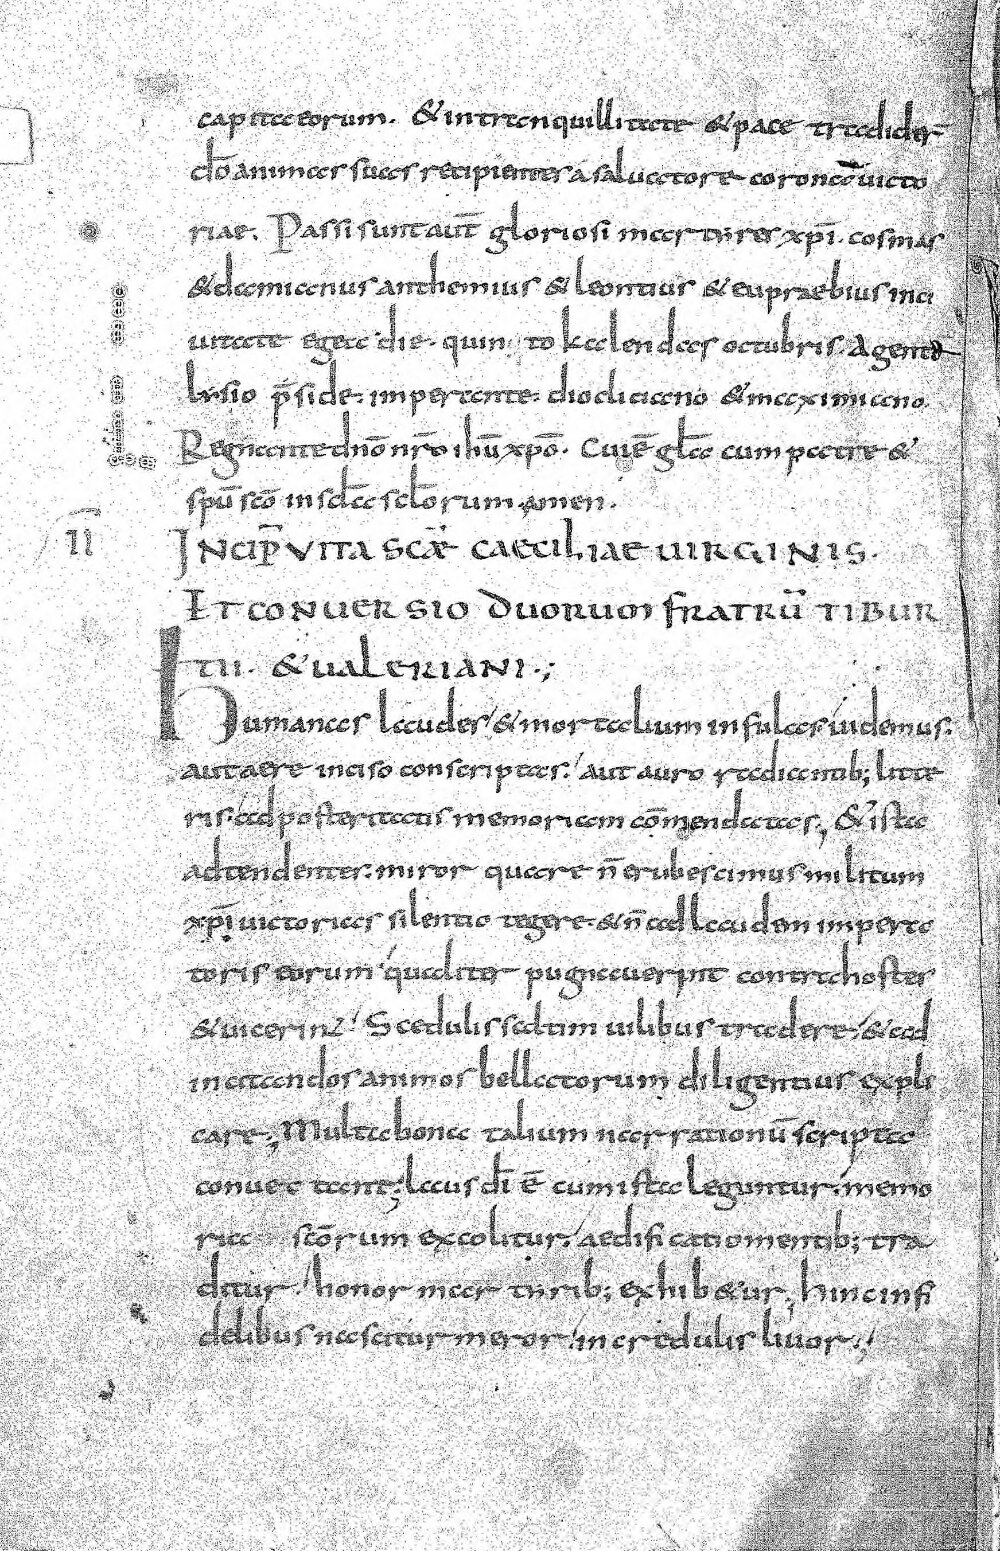 capita eorum. & in tranquillitate & pace tradider̄
dō animas suas recipientes a saluatore coronā uicto
riae. Passi sunt aut̄ gloriosi martyres xp̄i. cosmas
& damianus anthemius & leontius & eupraebius in ci
uitate egea die. quinto kalendas octubris. Agente
lysio p̄side. imperante. diocliciano & maximiano.
Regnante dn̄o nr̄o ihū xp̄o. Cui ē glā cum patre &
spū scō in scl̄a sclōrum. amen.
II
INCIP̄ VITA SCAE CAECILIAE UIRGINIS.
ET CONUERSIO DUORUM FRATRŪ TIBUR
TII. & UALERIANI.;
Humanas laudes & mortalium infulas uidemus.
aut aere inciso conscriptas. aut auro radiantib; litte
ris. ad posteritatis memoriam cōmendatas; & ista
adtendentes. miror quare n̄ erubescimus militum
xp̄i uictorias silentio tegere. & n̄ ad laudem impera
toris eorum qualiter pugnauerint contra hostes
& uicerint. Scedulis saltim uilibus tradere. & ad
incitandos animos bellatorum diligentius expli
care; Multa bona talium narrationū scripta
conue c tant; laus dī ē cum ista leguntur. memo
ria scōrum excolitur. aedificatio mentib; tra
ditur. honor martyrib; exhib&ur; hinc infi
delibus nascitur meror. incredulis liuor;